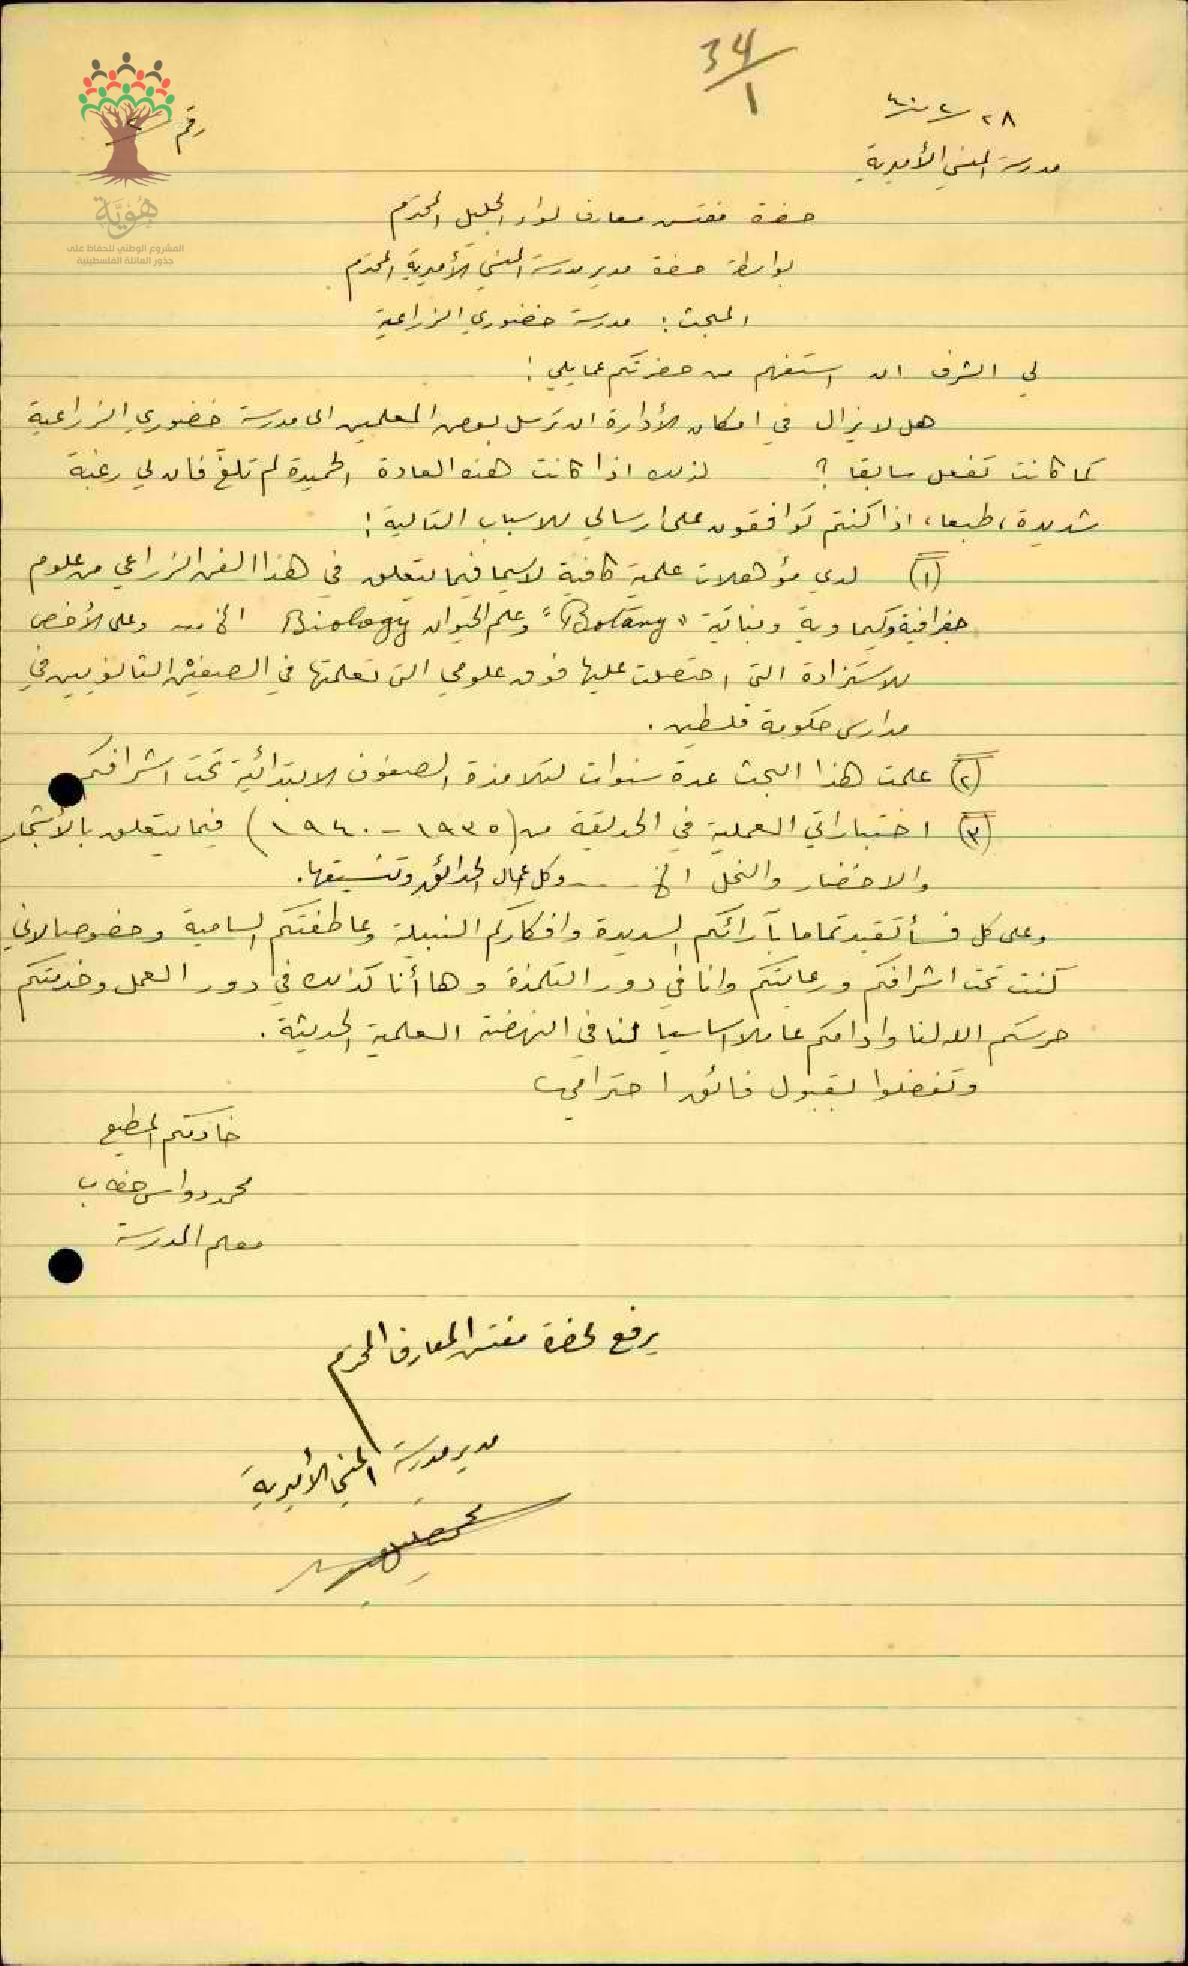 34/1
٢٨/٢/٤٠
رقم ٢
مدرسة المنسي الأميرية
هُوِيَّة
المشروع الوطني للحفاظ على
جذور العائلة الفلسطينية
حضرة مفتش معارف لواء الجليل المحترم
بواسطة حضرة مدير مدرسة المنسي الأميرية المحترم
المبحث : مدرسة خضوري الزراعية
لي الشرف ان استفهم من حضرتكم عما يلي :
هل لا يزال في امكان الأدارة ان ترسل بعض المعلمين الى مدرسة خضوري الزراعية
كما كانت تفعل سابقا ؟ لذلك اذا كانت هذه العادة الحميدة لم تلغَ فان لي رغبة
شديدة ، طبعا ، اذا كنتم توافقون على ارسالي للاسباب التالية :
(١) لدي مؤهلات علمية كافية لاسيما فيما يتعلق في هذا الفن الزراعي من علوم
جغرافية وكيماوية ونباتية "Botany" وعلم الحيوان Biology الخ وعلى الأخص
للاستزادة التي احتصلت عليها فوق علومي التي تعلمتها في الصفين الثانويين في
مدارس حكومة فلسطين .
(٢) علمت هذا البحث عدة سنوات لتلامذة الصفوف الابتدائية تحت اشرافكم
(٣) اختباراتي العملية في الحديقة من (١٩٣٥ - ١٩٤٠) فيما يتعلق بالأشجار
والاخضار والنحل الخ وكل اعمال الحدائق وتنسيقها .
وعلى كل فسأتقيد تماما بآرائكم السديدة وافكاركم النبيلة وعاطفتكم السامية وخصوصا لاني
كنت تحت اشرافكم ورعايتكم وانا في دور التلمذة وها أنا كذلك في دور العمل وخدمتكم
حرسكم الله لنا وادامكم عاملا اساسيا لنا في النهضة العلمية الحديثة .
وتفضلوا بقبول فائق احترامي
خادمكم المطيع
محمد دواس خطاب
معلم المدرسة
يرفع لحضرة مفتش المعارف المحترم
مدير مدرسة المنسي الأميرية
محمد